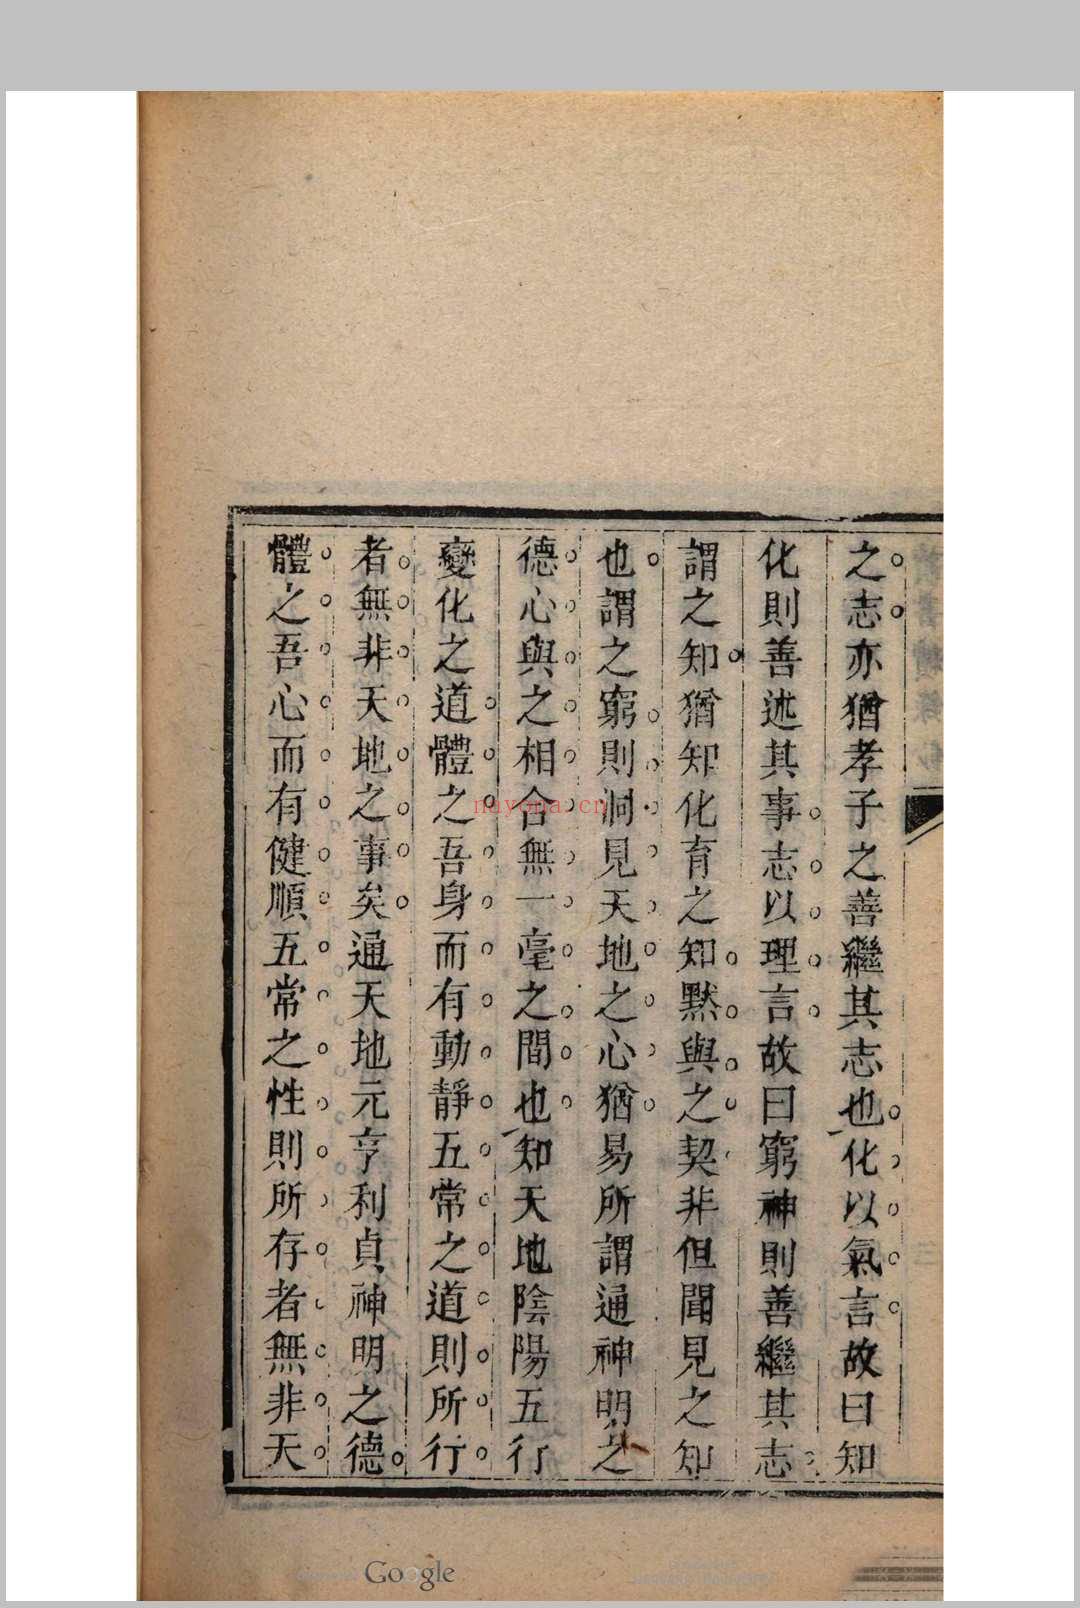 之志亦猶孝子之善繼其志也化以氣言故曰知
化則善述其事志以理言故曰窮神則善繼其志
謂之知猶知化育之知默與之契非但聞見之知
也謂之窮則洞見天地之心猶易所謂通神明之
德心與之相合無一毫之間也知天地陰陽五行
變化之道體之吾身而有動靜五常之道則所行
者無非天地之事矣通天地元亨利貞神明之德
體之吾心而有健順五常之性則所存者無非天
nayona.cn
Google